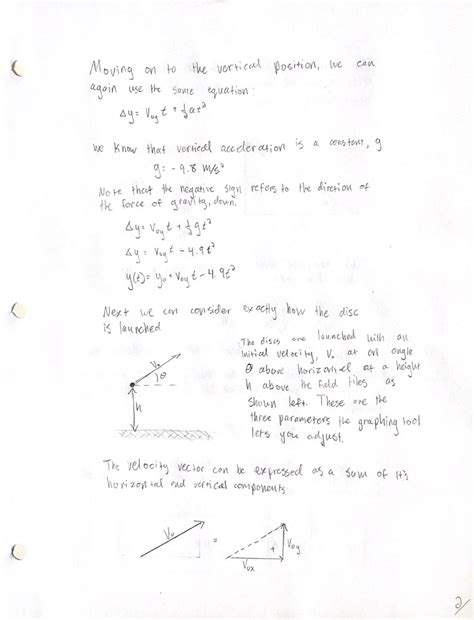 Moving on to the vertical position, we can
again use the same equation:
Δy = V₀y t + ½at²
We know that vertical acceleration is a constant, g
g = -9.8 m/s²
Note that the negative sign refers to the direction of
the force of gravity, down.
Δy = V₀y t + ½gt²
Δy = V₀y t - 4.9t²
y(t) = y₀ + V₀y t - 4.9t²
Next we can consider exactly how the disc
is launched
The discs are launched with an
initial velocity, V₀ at an angle
θ above horizontal at a height
h above the field tiles as
shown left. These are the
three parameters the graphing tool
lets you adjust.
V₀
θ
h
The velocity vector can be expressed as a sum of it's
horizontal and vertical components.
V₀
=
+
V₀y
V₀x
2/